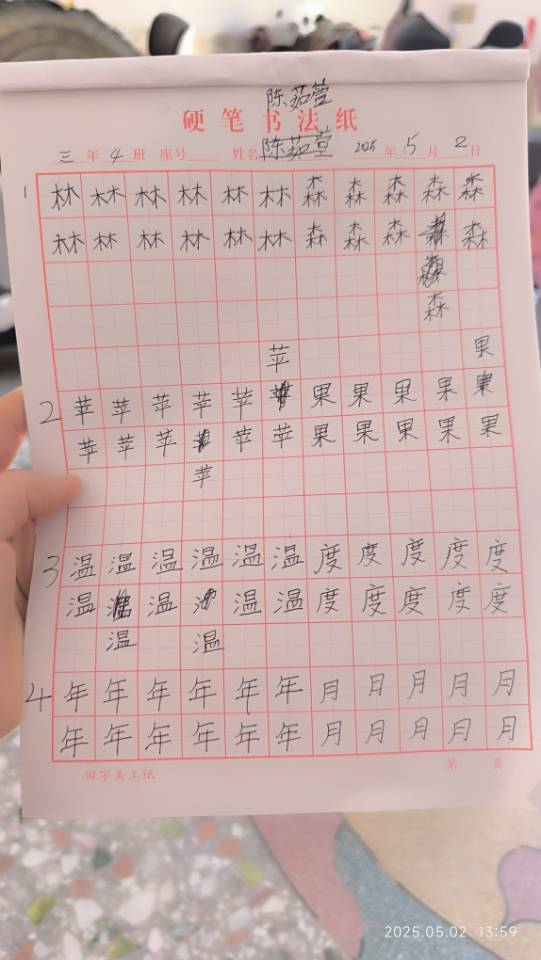 陈茹萱
硬笔书法纸
三年4班 座号 姓名陈茹萱 2025年5月2日
1 林林林林林林森森森森森
林林林林林林森森森森
森
苹 果
2 苹苹苹苹苹果果果果
苹苹苹苹苹果果果果果
苹
3 温温温温温温度度度度度
温温温温度度度度度
温 温
4 年年年年年年月月月月月
年年年年年年月月月月月
田字美工纸 第 页
2025.05.02 13:59